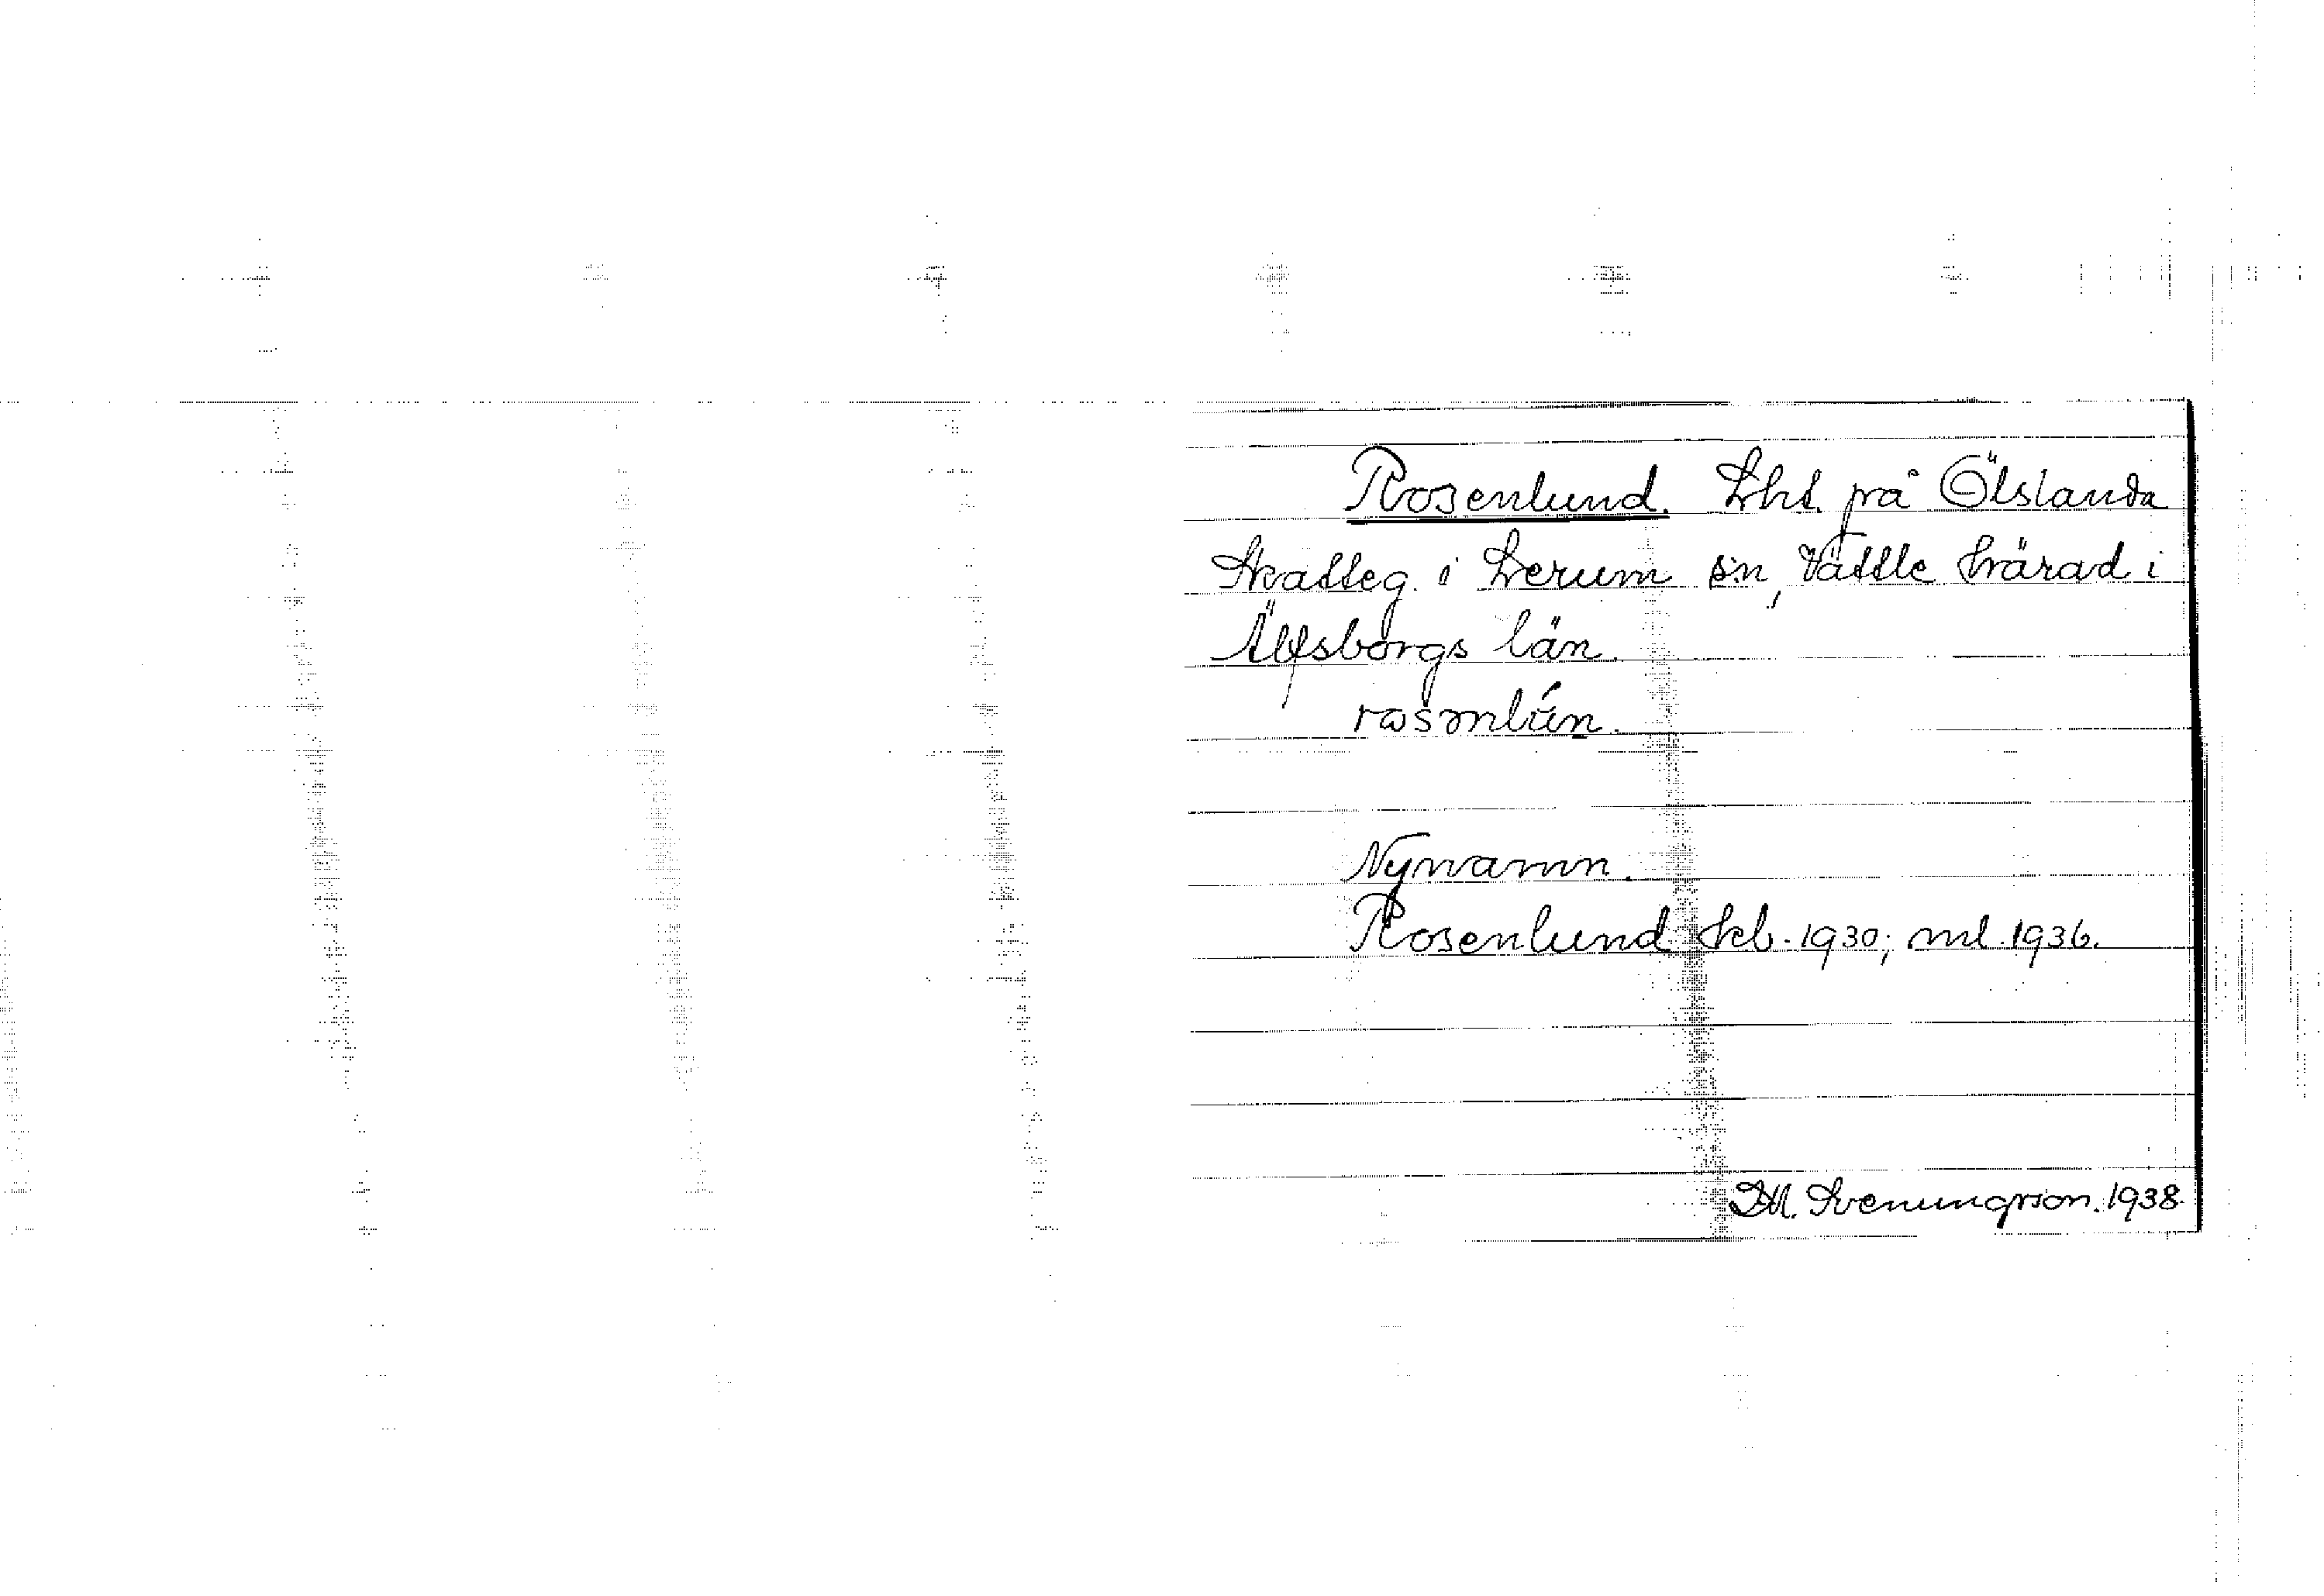 Rosenlund. Lht. på Ölslanda
Skatteg. i Lerum sn, Vättle härad i
Älfsborgs län.
Nynamn.
Rosenlund kb. 1930; ml. 1936.
M. Svenungsson. 1938